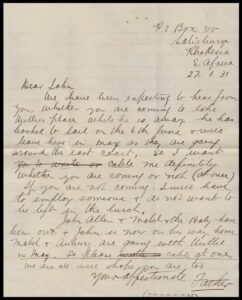 P.O Box 315
Salisbury
Rhodesia
S. Africa
27. 1. 31
Dear John
We have been expecting to hear from
you, whether you are coming to take
Arthurs place while he is away. he has
booked to sail on the 6th June & will
leave here in may as they are going
around the east coast, so I want
you to write or cable me definitely
whether you are coming or not (at once)
If you are not coming I will have
to employ someone & do not want to
be left in the lurch.
John Allen & Mabel & the Baby have
been out & John is now on his way home
Mabel & Audrey are going with
in May. So please cable at once
we are all well hope you are too
Your affectionate Father